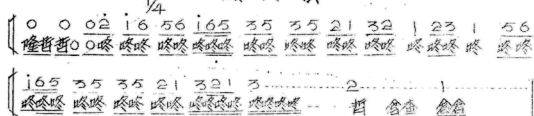 1/4
0 0 02̇ 1̇6 56 1̇65 35 35 21 32 1 23 1 56
隆哲哲0 0咚 咚咚 咚咚 咚咚咚 咚咚 咚咚 咚咚 咚咚 咚 咚咚 咚 咚咚
1̇65 35 35 21 321 3 2 1
咚咚咚 咚咚 咚咚 咚咚 咚咚咚咚 咚咚咚咚 哲